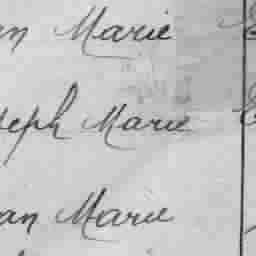 an Marie
seph Marie
ean Marie